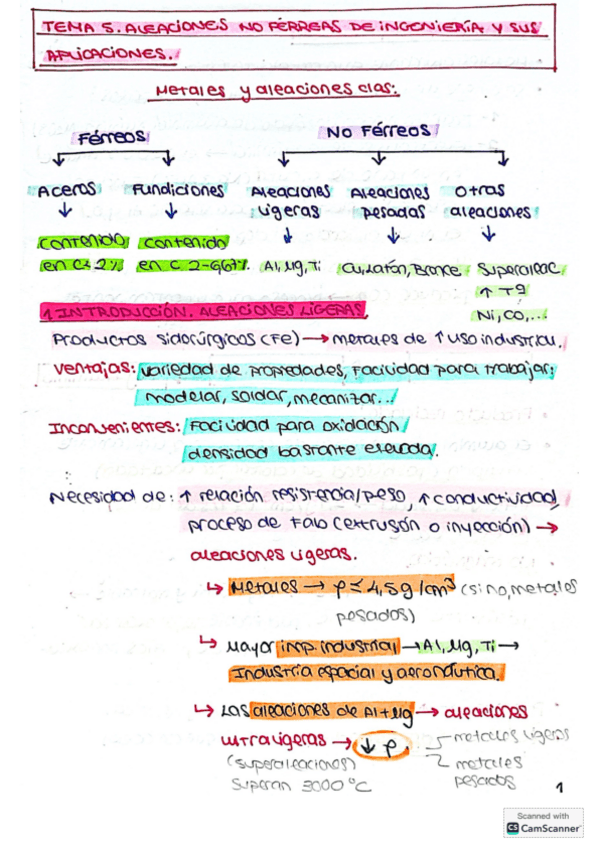 TEMA 5. ALEACIONES NO FÉRREAS DE INGENIERÍA Y SUS
APLICACIONES.
Metales y aleaciones clas:
Férreos
No Férreos
Aceros Fundiciones Aleaciones Aleaciones Otras
ligeras pesadas aleaciones
contenido contenido
en C<2% en C 2-6'67% Al, Mg, Ti Cu, Latón, Bronce Superaleac
↑ Tª
Ni, Co,...
1. INTRODUCCIÓN. ALEACIONES LIGERAS.
Productos siderúrgicos (Fe) → metales de ↑ uso industrial.
Ventajas: variedad de propiedades, facilidad para trabajar:
modelar, soldar, mecanizar...
Inconvenientes: Facilidad para oxidación
densidad bastante elevada.
Necesidad de: ↑ relación resistencia/peso, ↑ conductividad,
proceso de fab (extrusón o inyección) →
aleaciones ligeras.
↳ Metales → ρ ≤ 4,5 g/cm³ (sino, metales
pesados)
↳ Mayor imp. industrial → Al, Mg, Ti →
Industria espacial y aeronáutica.
↳ Las aleaciones de Al + Mg → aleaciones
ultraligeras → ↓ ρ. 5 metales ligeros
(superaleaciones) 2 metales
Superan 3000 °C pesados
1
Scanned with
CS CamScanner